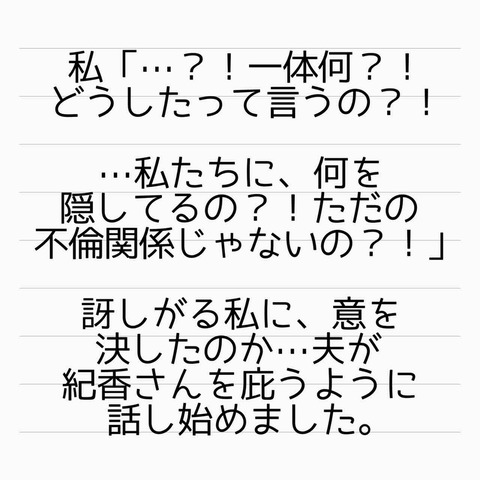 私「…？！一体何？！
どうしたって言うの？！
…私たちに、何を
隠してるの？！ただの
不倫関係じゃないの？！」
訝しがる私に、意を
決したのか…夫が
紀香さんを庇うように
話し始めました。